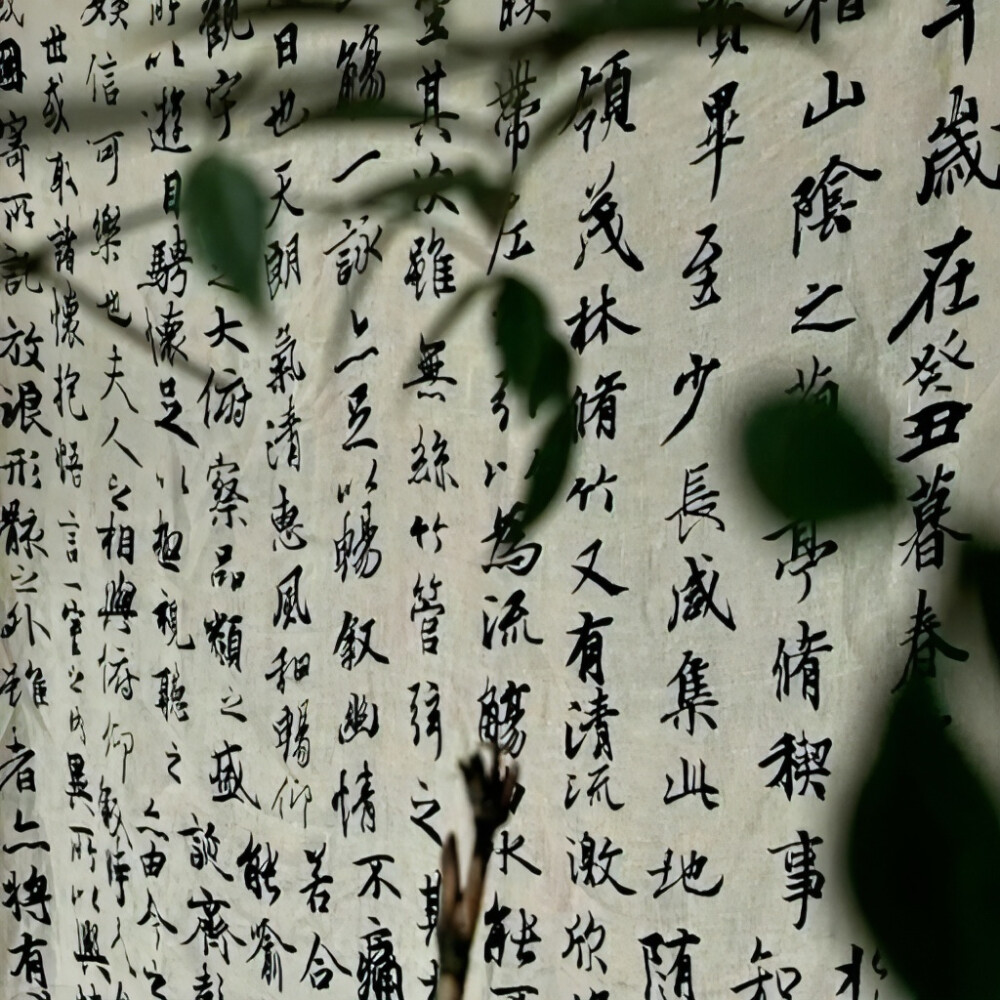 年歲在癸丑暮春
稽山陰之蘭亭脩稧事
知
賢畢至少長咸集此地
隨
領茂林脩竹又有清流激
欣
映帶左引以為流觴水
能不
坐其次雖無絲竹管弦之
其
觴一詠亦足以暢敘幽情
不痛
日也天朗氣清惠風和暢仰
若合
觀宇之大俯察品類之盛
能喻
所以遊目騁懷足以極視聽之
談齊彭
娛信可樂也夫人之相與俯仰
亦由今之
世或取諸懷抱悟言一室之內
異所以興
因寄所託放浪形骸之外雖
者亦將有